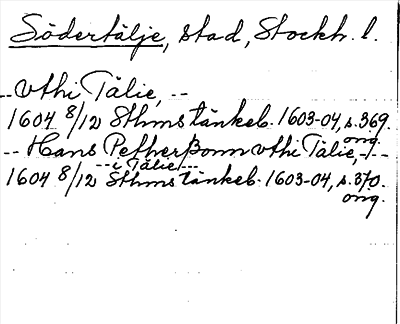 Södertälje, stad, Stockh. l.
--vthi Tälie, --
1604 8/12 Sthms tänkeb. 1603-04, s.369.
orig.
-- Hans Petherßonn vthi Tälie,--
-- i Tälie --
1604 8/12 Sthms tänkeb. 1603-04, s.370.
orig.